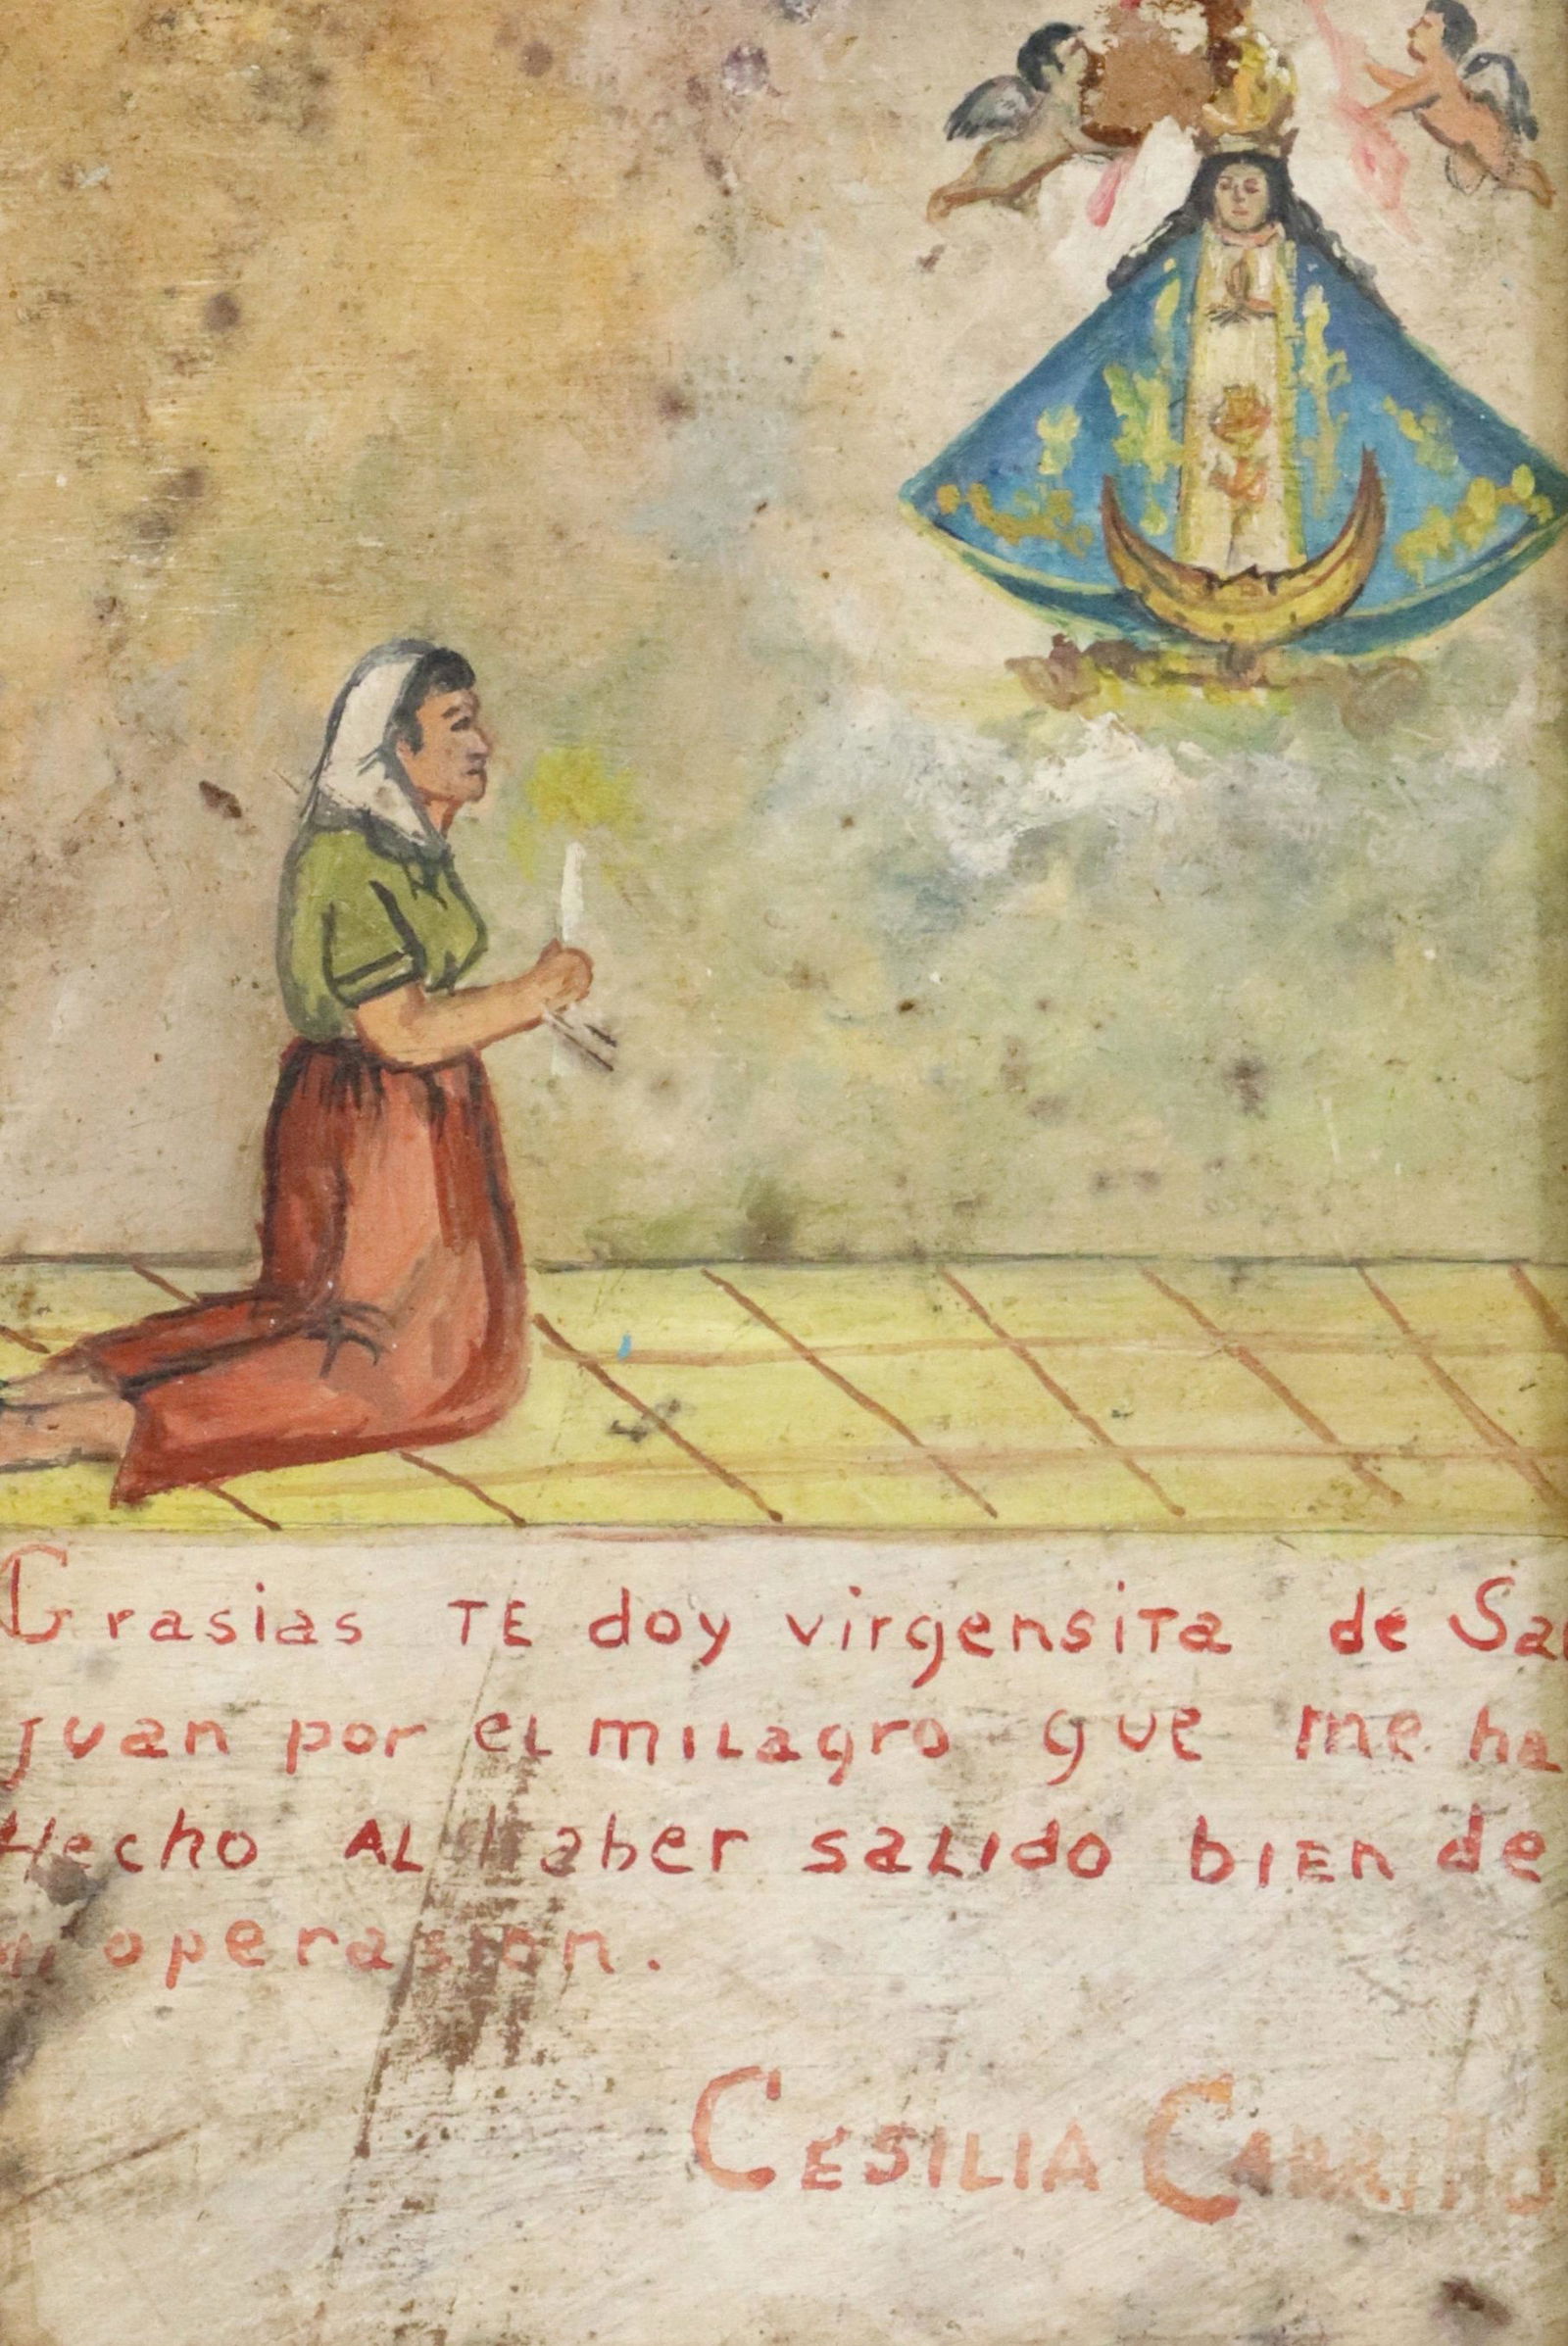 Grasias TE doy virgensita de San
juan por el milagro que me ha
Hecho AL haber salido bien de
mi operasion.
CESILIA CARRILLO